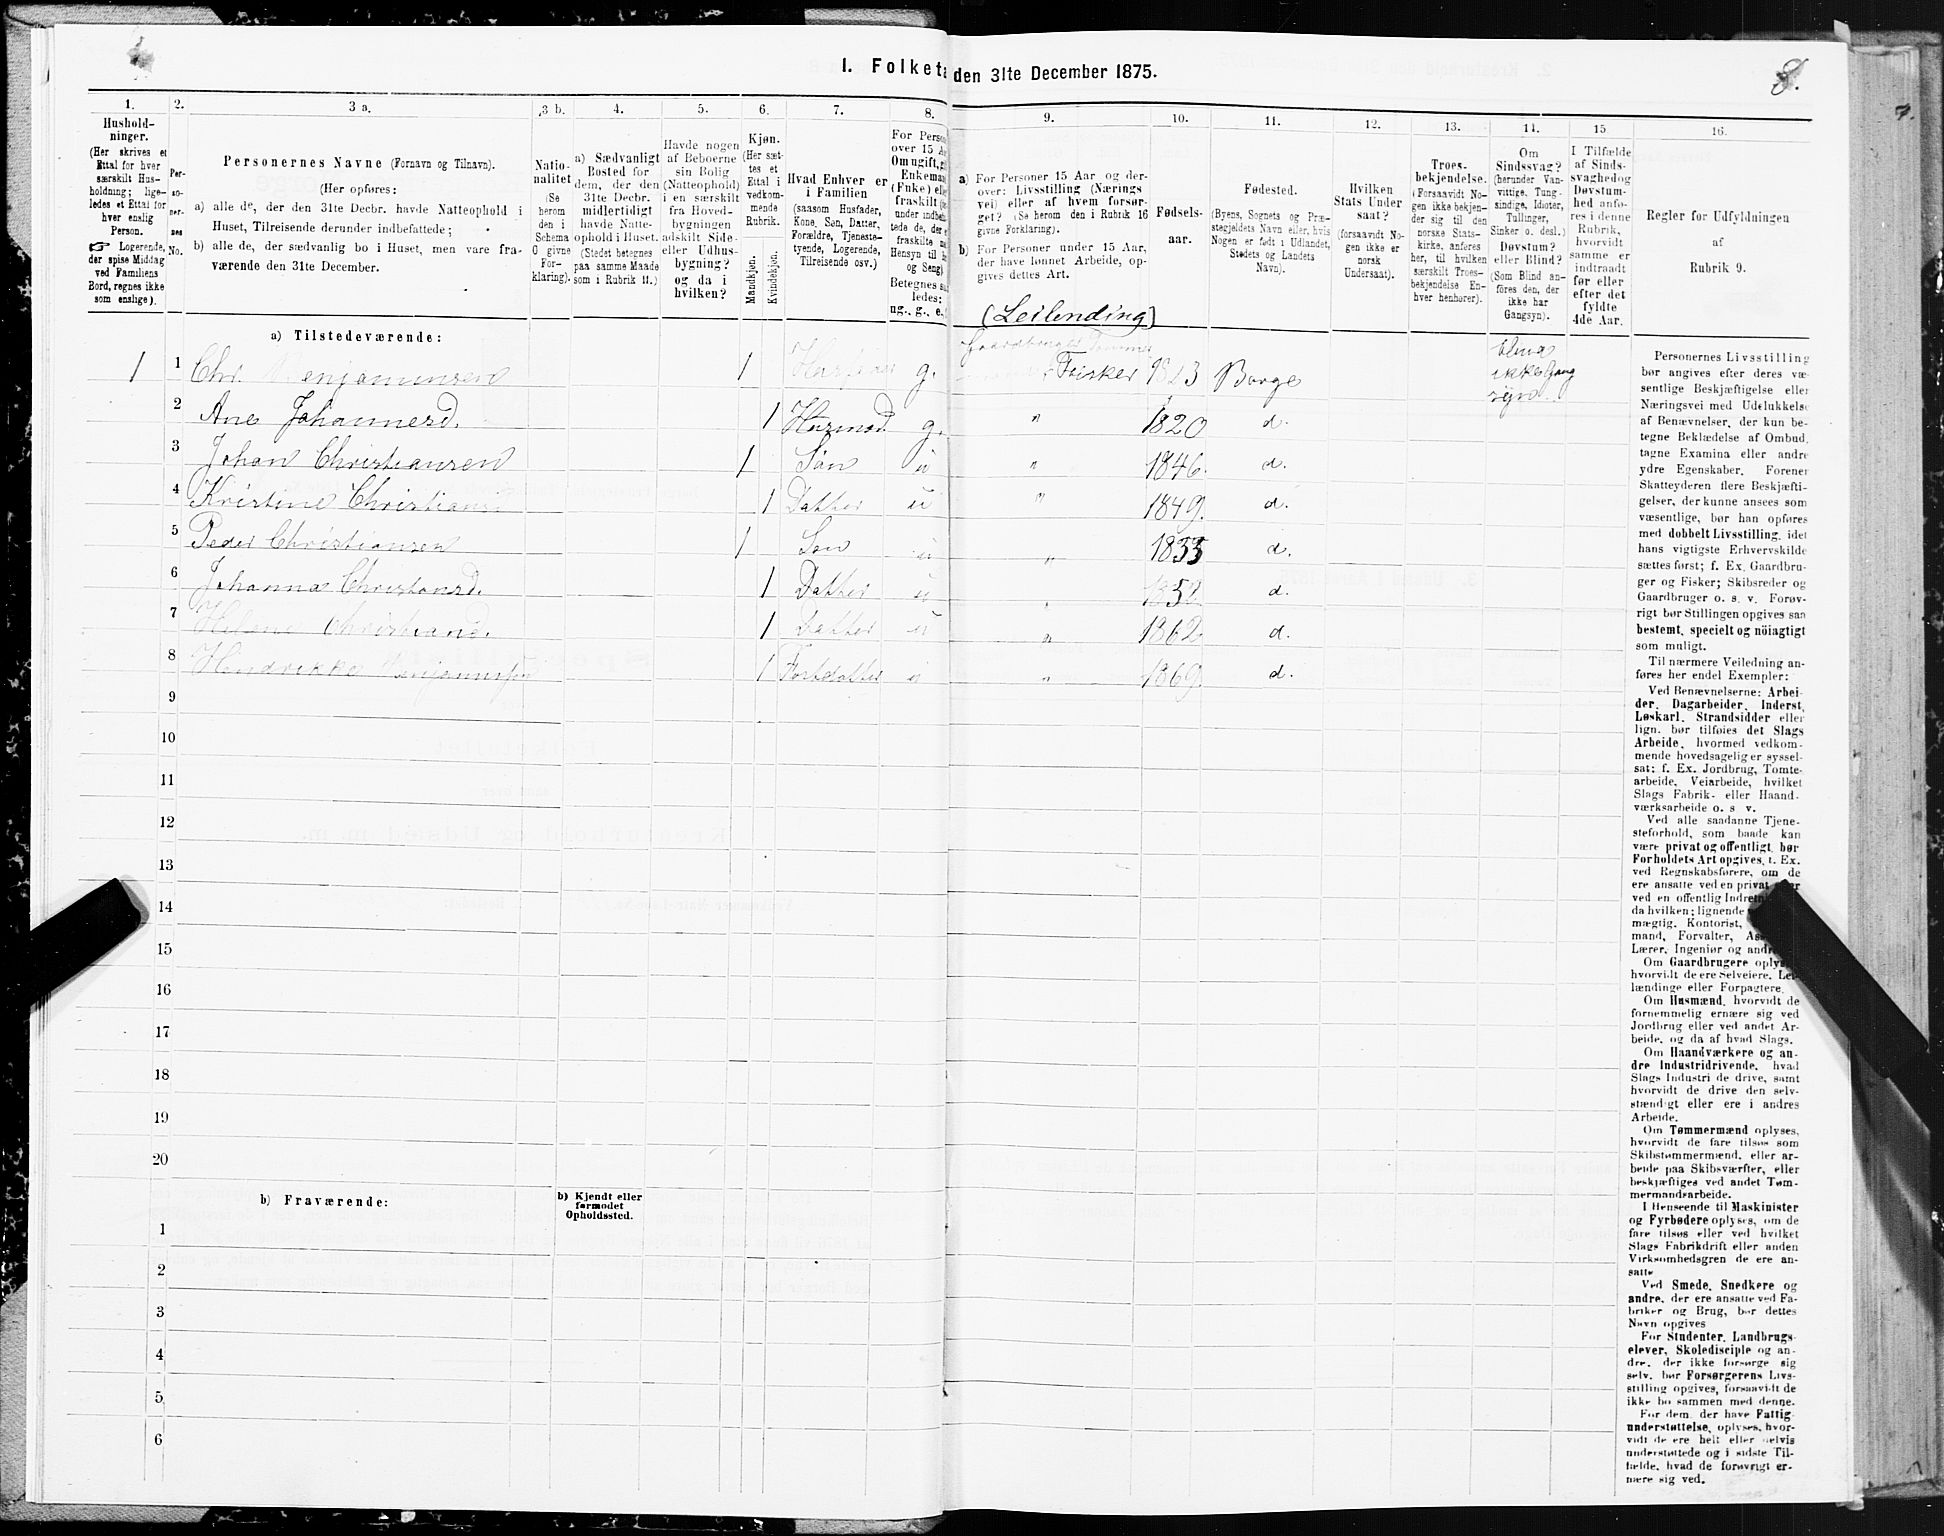 I. Folketæ den 31te December 1875.
8.
7.
1.
Hushold-
ninger.
(Her skrives et
Ettal for hver
særskilt Hus-
holdning; lige-
ledes et Ettal for
hver enslig
Person.
☞ Logerende,
der spise Middag
ved Familiens
Bord, regnes ikke
som enslige).
2.
Per-
so-
ner-
nes
No.
3 a.
Personernes Navne (Fornavn og Tilnavn).
(Her opføres:
a) alle de, der den 31te Decbr. havde Natteophold i
Huset, Tilreisende derunder indbefattede;
b) alle de, der sædvanlig bo i Huset, men vare fra-
værende den 31te December.
3 b.
Natio-
nalitet
(Se
herom
den i
Schema
G givne
For-
klaring).
4.
a) Sædvanligt
Bosted for
dem, der den
31te Decbr.
midlertidigt
havde Natte-
ophold i Huset.
(Stedet betegnes
paa samme Maade
som i Rubrik 11.)
5.
Havde nogen
af Beboerne
sin Bolig
(Natteophold)
i en særskilt
fra Hoved-
bygningen
adskilt Side-
eller Udhus-
bygning?
og da i
hvilken?
6.
Kjøn.
(Her sæt-
tes et
Ettal i
vedkom-
mende
Rubrik.
Mandkjøn.
Kvindekjøn.
7.
Hvad Enhver er
i Familien
(saasom Husfader,
Kone, Søn, Datter,
Forældre, Tjeneste-
tyende, Logerende,
Tilreisende osv.)
8.
For Perso
over 15 A
Om ugift, g
Enkema
(Enke) ell
fraskilt
under indbe
tede de, der
fraskilte
Hensyn til
og Seng)
Betegnes
ledes:
ug., g., e.,
9.
a) For Personer 15 Aar og der-
over: Livsstilling (Nærings
vei) eller af hvem forsør-
get? (Se herom den i Rubrik 16
givne Forklaring).
b) For Personer under 15 Aar,
der have lønnet Arbeide, op-
gives dettes Art.
(Leilending)
10.
Fødsels-
aar.
11.
Fødested.
(Byens, Sognets og Præ-
stegjeldets Navn eller, hvis
Nogen er født i Udlandet,
Stedets og Landets
Navn).
12.
Hvilken
Stats Under
saat?
(forsaavidt No-
gen ikke er
norsk
Undersaat).
13.
Troes-
bekjendelse.
(Forsaavidt No-
gen ikke bekjen-
der sig til den
norske Stats-
kirke, anføres
her, til hvilken
særskilt Troes-
bekjendelse En-
hver henhører).
14.
Om
Sindssvag?
(herunder Van-
vittige, Tung-
sindige, Idioter,
Tullinger,
Sinker o. desl.)
Døvstum?
eller Blind?
(Som Blind an-
føres den, der
ikke har
Gangsyn).
15
I Tilfælde
af Sinds-
svaghed og
Døvstum-
hed anfø-
res i denne
Rubrik,
hvorvidt
samme er
indtraadt
før eller
efter det
fyldte
4de Aar.
16.
Regler for Udfyldningen
af
Rubrik 9.
a) Tilstedeværende:
1 1 Chr. Benjaminsen 1 Husfader g. Fisker 1823 Borge ikke Gang
2 Ane Johannesd. 1 Husmod g. " 1820 d.
3 Johan Christiansen 1 Søn u " 1846. d.
4 Kristine Christiansd 1 Datter u " 1849. d.
5 Peder Christiansen 1 Søn u " 1855 d.
6 Johanna Christiansd. 1 Datter u " 1858 d.
7 Helene Christiansd. 1 Datter u " 1862 d.
8 Hendrikke Benjaminsen 1 Fostdatter u " 1869. d.
9
10
11
12
13
14
15
16
17
18
19
20
b) Fraværende:
b) Kjendt eller
formodet
Opholdssted.
1
2
3
4
5
6
Personernes Livsstilling
bør angives efter deres væ-
sentlige Beskjæftigelse eller
Næringsvei med Udelukkelse
af Benævnelser, der kun be-
tegne Beklædelse af Ombud,
tagne Examina eller andre
ydre Egenskaber. Forener
Skatteyderen flere Beskjæfti-
gelser, der kunne ansees som
væsentlige, bør han opføres
med dobbelt Livsstilling, idet
hans vigtigste Erhvervskilde
sættes først; f. Ex. Gaardbru-
ger og Fisker; Skibsreder og
Gaardbruger o. s. v. Forøv-
rigt bør Stillingen opgives saa
bestemt, specielt og nöiagtigt
som muligt.
Til nærmere Veiledning an-
føres her endel Exempler:
Ved Benævnelserne: Arbei-
der, Dagarbeider, Inderst,
Løskarl, Strandsidder eller
lign. bør tilføies det Slags
Arbeide, hvormed vedkom-
mende hovedsagelig er syssel-
sat; f. Ex. Jordbrug, Tomte-
arbeide, Veiarbeide, hvilket
Slags Fabrik- eller Haand-
værksarbeide o. s. v.
Ved alle saadanne Tjene-
steforhold, som baade kan
være privat og offentligt, bør
Forholdets Art opgives, t. Ex.
ved Regnskabsførere, om de
ere ansatte ved en privat eller
ved en offentlig Indretn
da hvilken; lignende
mægtig, Kontorist,
mand, Forvalter, As
Lærer, Ingeniør og andre
Om Gaardbrugere oplyse
hvorvidt de ere Selveiere, Lei-
lændinge eller Forpagtere.
Om Husmænd, hvorvidt de
fornemmelig ernære sig ved
Jordbrug eller ved andet Ar-
beide, og da af hvad Slags.
Om Haandværkere og an-
dre Industridrivende, hvad
Slags Industri de drive, samt
hvorvidt de drive den selv-
stændigt eller ere i andres
Arbeide.
Om Tømmermænd oplyses,
hvorvidt de fare tilsøs som
Skibstømmermænd, eller ar-
beide paa Skibsværfter, eller
beskjæftiges ved andet Tøm-
mermandsarbeide.
I Henseende til Maskinister
og Fyrbødere oplyses, om de
fare tilsøs eller ved hvilket
Slags Fabrikdrift eller anden
Virksomhedsgren de ere an-
satte
Ved Smede, Snedkere og
andre, der ere ansatte ved Fa-
briker og Brug, bør dettes
Navn opgives
For Studenter, Landbrugs-
elever, Skoledisciple og an-
dre, der ikke forsørge sig
selv, bør Forsørgerens Livs-
stilling opgives, forsaavidt de
ikke bo sammen med denne.
For dem, der have Fattig-
understøttelse, oplyses, hvor-
vidt de ere helt eller delvis
understøttede og i sidste Til-
fælde, hvad de forøvrigt er-
nære sig ved.